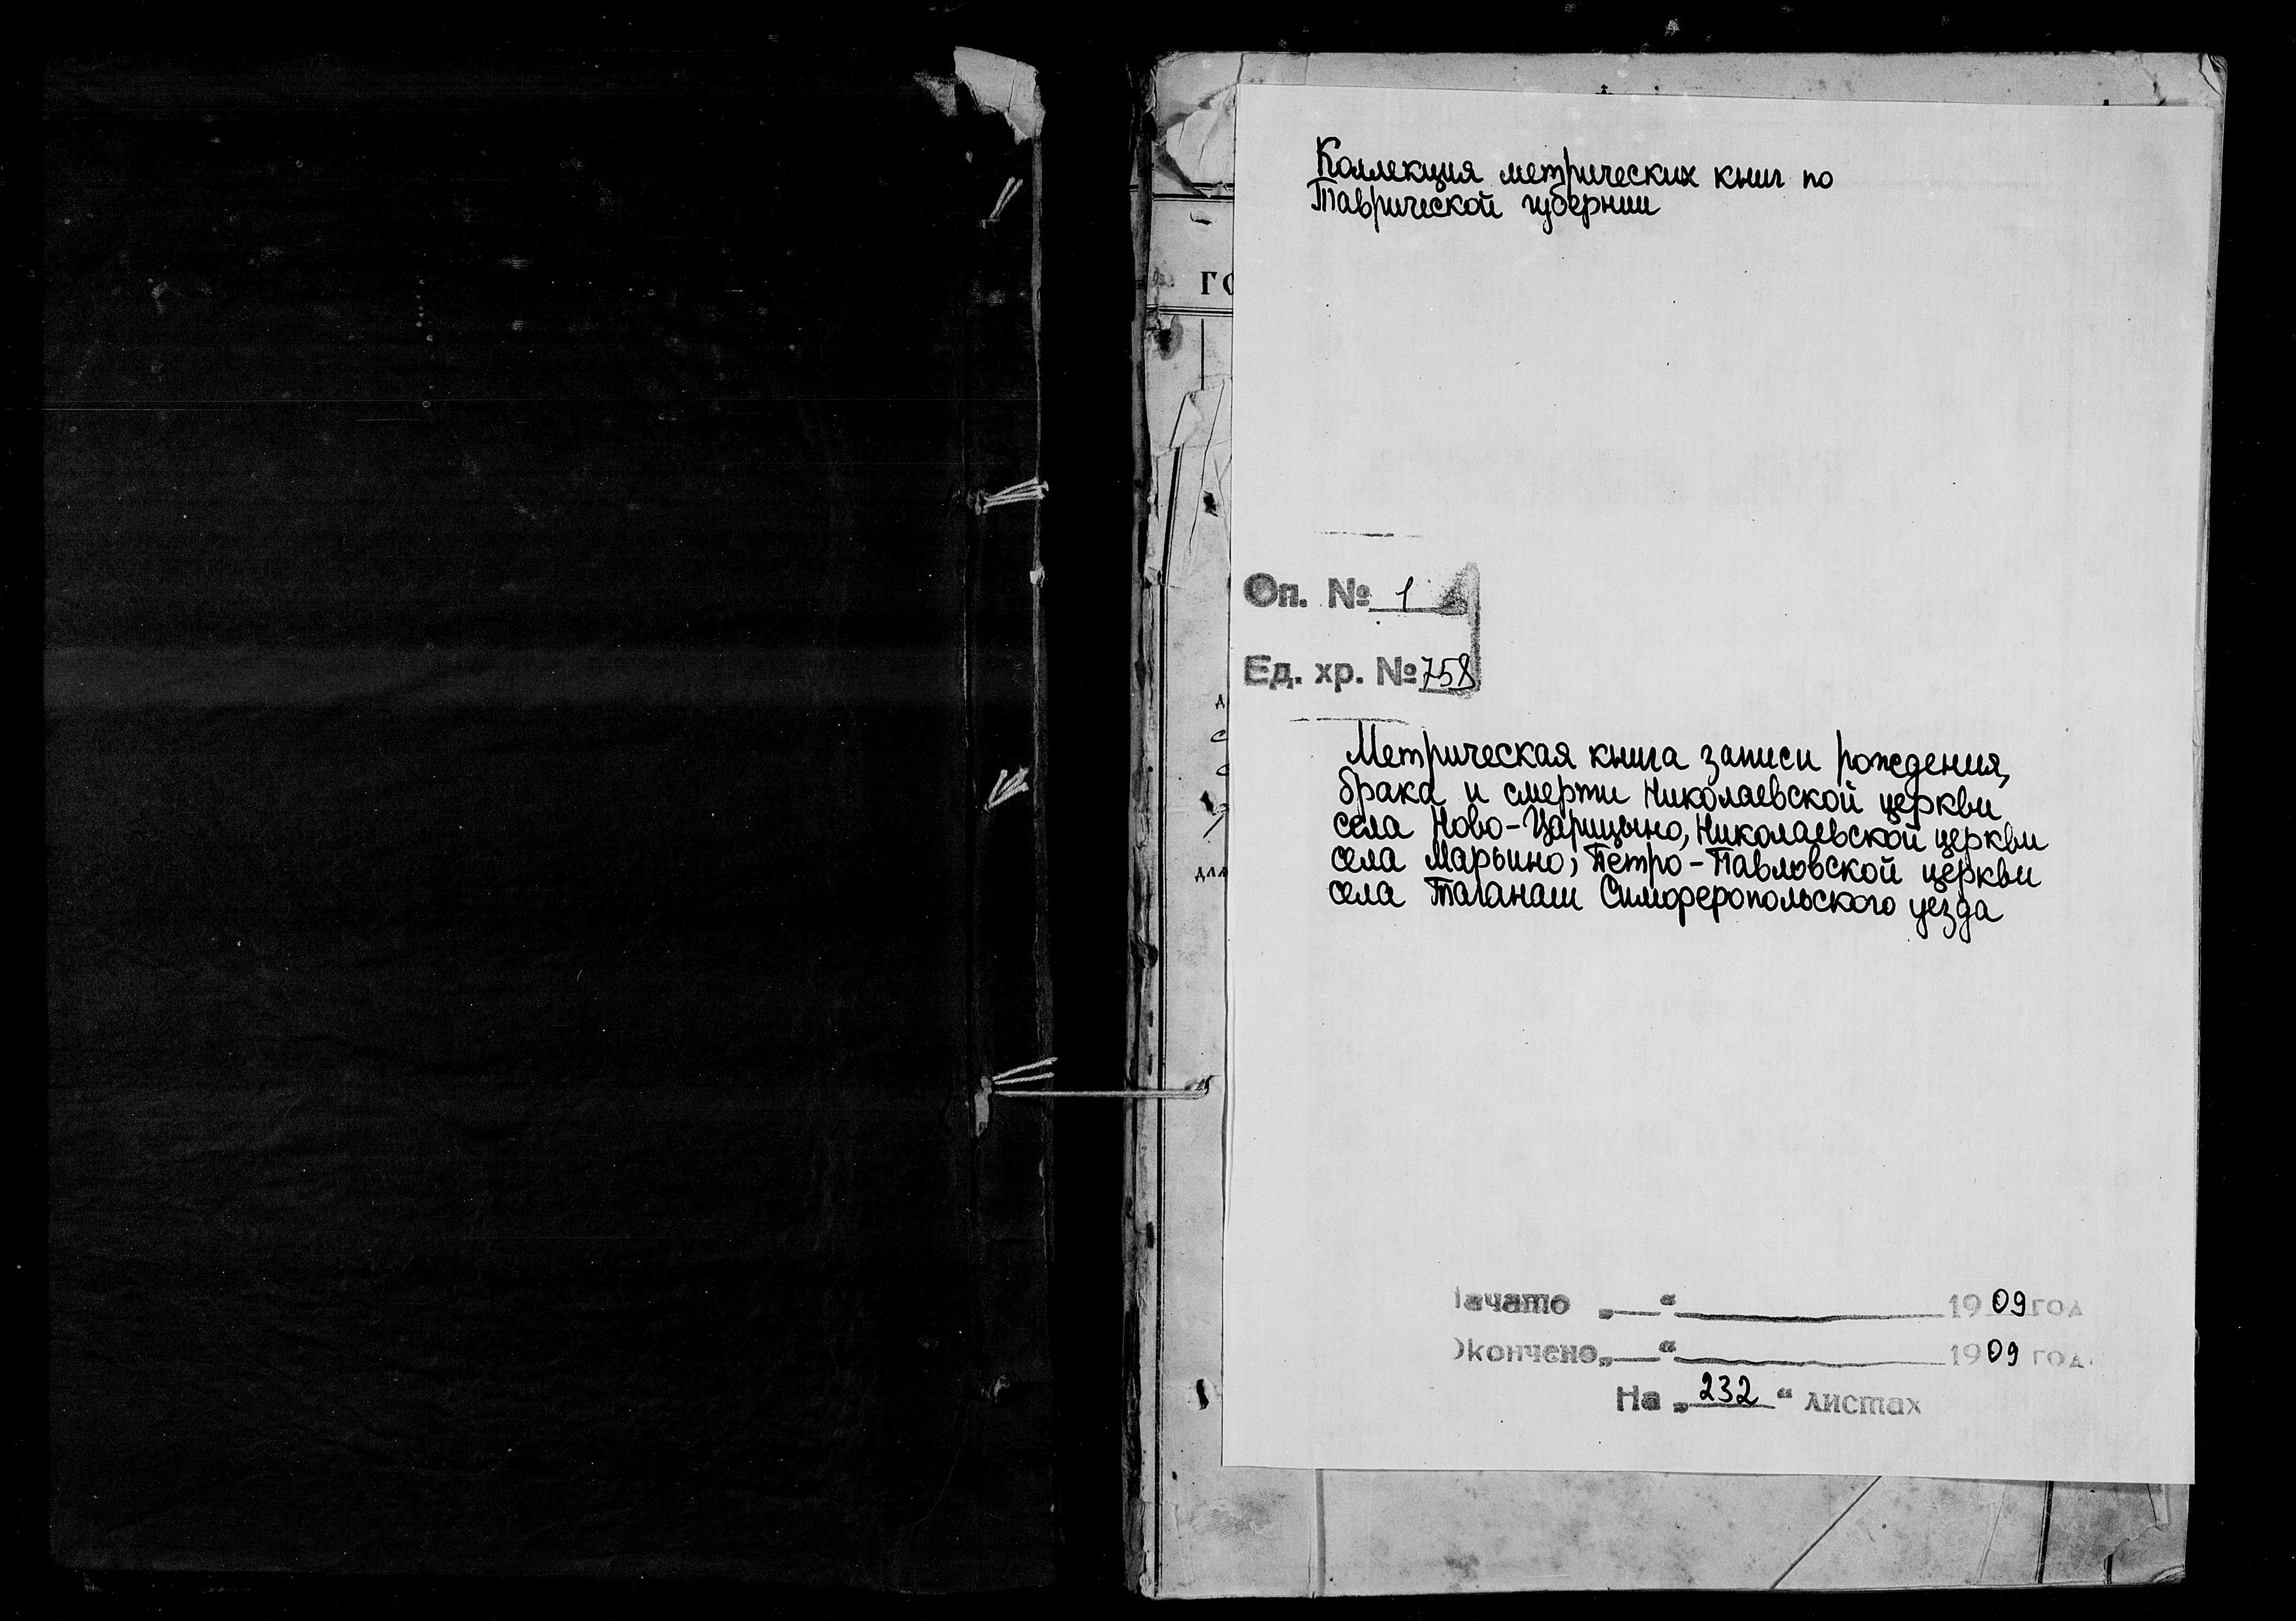 Коллекция метрических книг по
Таврической губернии
ГО
Оп. № 1
Ед. хр. № 758
Метрическая книга записи рождения,
брака и смерти Николаевской церкви
села Ново-Царицыно, Николаевской церкви
села Марьино, Петро-Павловской церкви
села Таганаш Симферопольского уезда
для
Начато „—“ 1909 год
Окончено „—“ 1909 год.
На „232“ листах